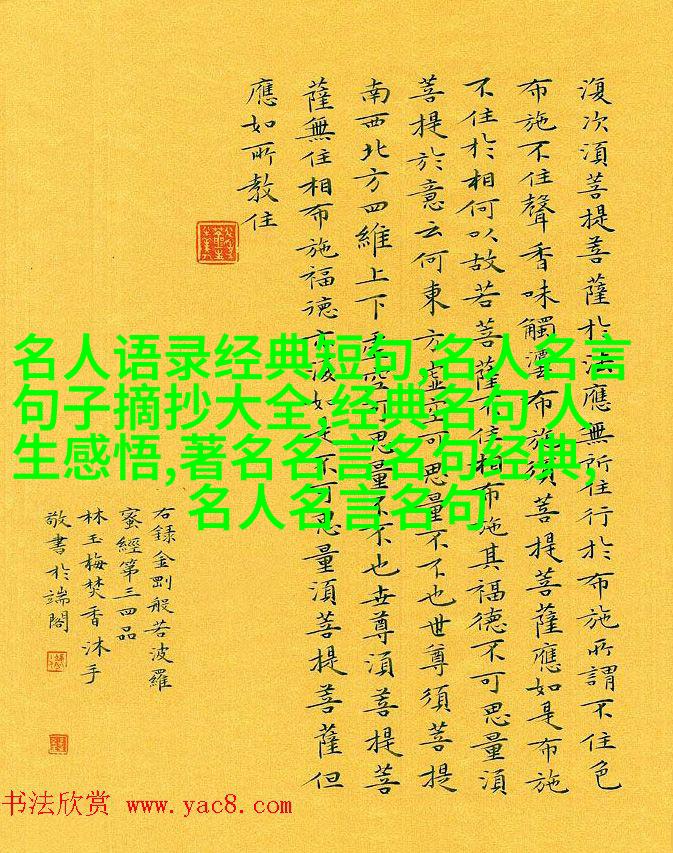 復次湏菩提菩薩於法應無所住行於布施所謂不住色
布施不住聲香味觸灋布施須菩提菩薩應如是布施
不住於相何以故若菩薩不住相布施其福德不可思量湏
菩提於意云何東方虛空可思量不不也世尊須菩提
南西北方四維上下虛空可思量不不也世尊湏菩提菩
薩無住相布施福德亦復如是不可思量湏菩提菩薩但
應如所教住
右錄金剛般若波羅
蜜經第三四品
林玉梅焚香沐手
敬書於端閣
名人语录经典短句,名人名言
句子摘抄大全,经典名句 人
生感悟,著名名言名句经典,
名人名言名句
书法欣赏 www.yac8.com